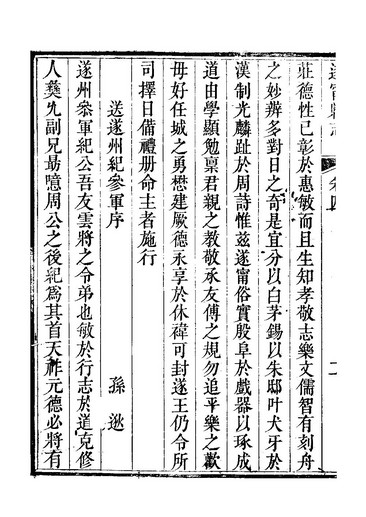 莊德性已彰於惠敏而且生知孝敬志樂文儒智有刻舟
之妙辨多對日之奇是宜分以白茅錫以朱邸叶犬牙於
漢制光麟趾於周詩惟兹遂甯俗實殷阜於戲器以琢成
道由學顯勉稟君親之教敬承友傅之規勿追平樂之歡
毋好任城之勇懋建厥德永享於休禕可封遂王仍令所
司擇日備禮册命主者施行
送遂州紀參軍序
孫逖
遂州叅軍紀公吾友雲將之令弟也敏於行志於道克修
人彝允副兄勗臆周公之後紀爲其首天祚元德必將有